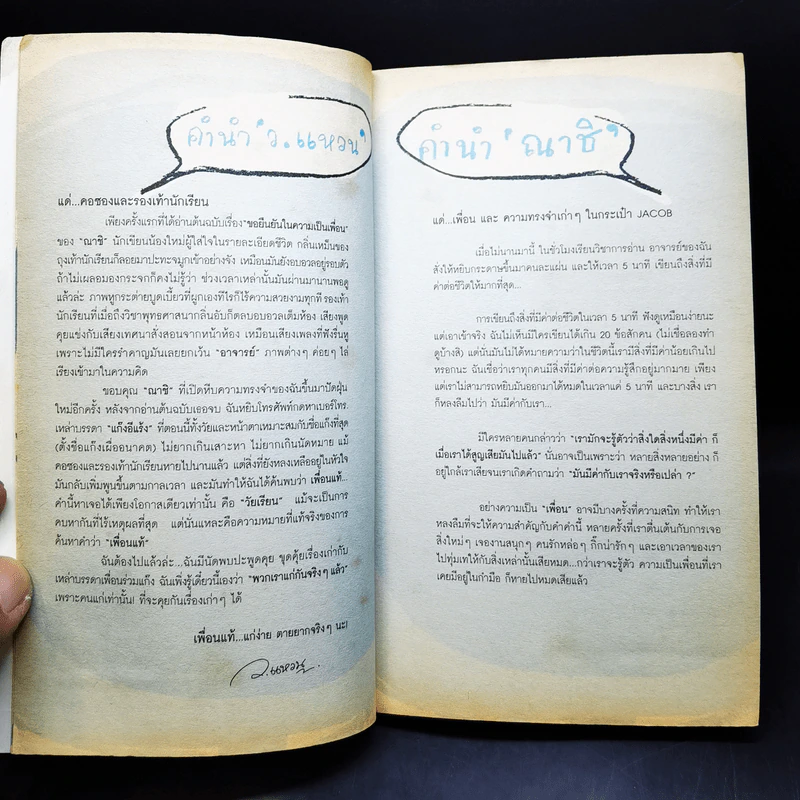 คำนำ 'ว.แหวน'
แด่...คอซองและรองเท้านักเรียน
เพียงครั้งแรกที่ได้อ่านต้นฉบับเรื่อง"ขอยืนยันในความเป็นเพื่อน"
ของ "ณาชิ" นักเขียนน้องใหม่ผู้ใส่ใจในรายละเอียดชีวิต กลิ่นเหม็นของ
ถุงเท้านักเรียนก็ลอยมาปะทะจมูกเข้าอย่างจัง เหมือนมันยังอบอวลอยู่รอบตัว
ถ้าไม่เผลอมองกระจกก็คงไม่รู้ว่า ช่วงเวลาเหล่านั้นมันผ่านมานานพอดู
แล้วล่ะ ภาพหูกระต่ายบูดเบี้ยวที่ผูกเองทีไรก็ไร้ความสวยงามทุกที รองเท้า
นักเรียนที่เมื่อถึงวิชาพุทธศาสนากลิ่นอับก็ตลบอบอวลเต็มห้อง เสียงพูด
คุยแข่งกับเสียงเทศนาสั่งสอนจากหน้าห้อง เหมือนเสียงเพลงที่ฟังรื่นหู
เพราะไม่มีใครรำคาญมันเลยยกเว้น "อาจารย์" ภาพต่างๆ ค่อยๆ ไล่
เรียงเข้ามาในความคิด
ขอบคุณ "ณาชิ" ที่เปิดหีบความทรงจำของฉันขึ้นมาปัดฝุ่น
ใหม่อีกครั้ง หลังจากอ่านต้นฉบับเธอจบ ฉันหยิบโทรศัพท์กดหาเบอร์โทร.
เหล่าบรรดา "แก๊งอีแร้ง" ที่ตอนนี้ทั้งวัยและหน้าตาเหมาะสมกับชื่อแก๊งที่สุด
(ตั้งชื่อแก๊งเผื่ออนาคต) ไม่ยากเกินเสาะหา ไม่ยากเกินนัดหมาย แม้
คอซองและรองเท้านักเรียนหายไปนานแล้ว แต่สิ่งที่ยังหลงเหลืออยู่ในหัวใจ
มันกลับเพิ่มพูนขึ้นตามกาลเวลา และมันทำให้ฉันได้ค้นพบว่า เพื่อนแท้...
คำนี้หาเจอได้เพียงโอกาสเดียวเท่านั้น คือ "วัยเรียน" แม้จะเป็นการ
คบหากันที่ไร้เหตุผลที่สุด แต่นั่นแหละคือความหมายที่แท้จริงของการ
ค้นหาคำว่า "เพื่อนแท้"
ฉันต้องไปแล้วล่ะ...ฉันมีนัดพบปะพูดคุย ขุดคุ้ยเรื่องเก่ากับ
เหล่าบรรดาเพื่อนร่วมแก๊ง ฉันเพิ่งรู้เดี๋ยวนี้เองว่า "พวกเราแก่กันจริงๆ แล้ว"
เพราะคนแก่เท่านั้น! ที่จะคุยกันเรื่องเก่าๆ ได้
เพื่อนแท้...แก่ง่าย ตายยากจริงๆ นะ!
ว.แหวน.
คำนำ 'ณาชิ'
แด่...เพื่อน และ ความทรงจำเก่าๆ ในกระเป๋า JACOB
เมื่อไม่นานมานี้ ในชั่วโมงเรียนวิชาการอ่าน อาจารย์ของฉัน
สั่งให้หยิบกระดาษขึ้นมาคนละแผ่น และให้เวลา 5 นาที เขียนถึงสิ่งที่มี
ค่าต่อชีวิตให้มากที่สุด...
การเขียนถึงสิ่งที่มีค่าต่อชีวิตในเวลา 5 นาที ฟังดูเหมือนง่ายนะ
แต่เอาเข้าจริง ฉันไม่เห็นมีใครเขียนได้เกิน 20 ข้อสักคน (ไม่เชื่อลองทำ
ดูบ้างสิ) แต่นั่นมันไม่ได้หมายความว่าในชีวิตนี้เรามีสิ่งที่มีค่าน้อยเกินไป
หรอกนะ ฉันเชื่อว่าเราทุกคนมีสิ่งที่มีค่าต่อความรู้สึกอยู่มากมาย เพียง
แต่เราไม่สามารถหยิบมันออกมาได้หมดในเวลาแค่ 5 นาที และบางสิ่ง เรา
ก็หลงลืมไปว่า มันมีค่ากับเรา...
มีใครหลายคนกล่าวว่า "เรามักจะรู้ตัวว่าสิ่งใดสิ่งหนึ่งมีค่า ก็
เมื่อเราได้สูญเสียมันไปแล้ว" นั่นอาจเป็นเพราะว่า หลายสิ่งหลายอย่าง ก็
อยู่ใกล้เราเสียจนเราเกิดคำถามว่า "มันมีค่ากับเราจริงหรือเปล่า ?"
อย่างความเป็น "เพื่อน" อาจมีบางครั้งที่ความสนิท ทำให้เรา
หลงลืมที่จะให้ความสำคัญกับคำคำนี้ หลายครั้งที่เราตื่นเต้นกับการเจอ
สิ่งใหม่ๆ เจองานสนุกๆ คนรักหล่อๆ กิ๊กน่ารักๆ และเอาเวลาของเรา
ไปทุ่มเทให้กับสิ่งเหล่านั้นเสียหมด...กว่าเราจะรู้ตัว ความเป็นเพื่อนที่เรา
เคยมีอยู่ในกำมือ ก็หายไปหมดเสียแล้ว